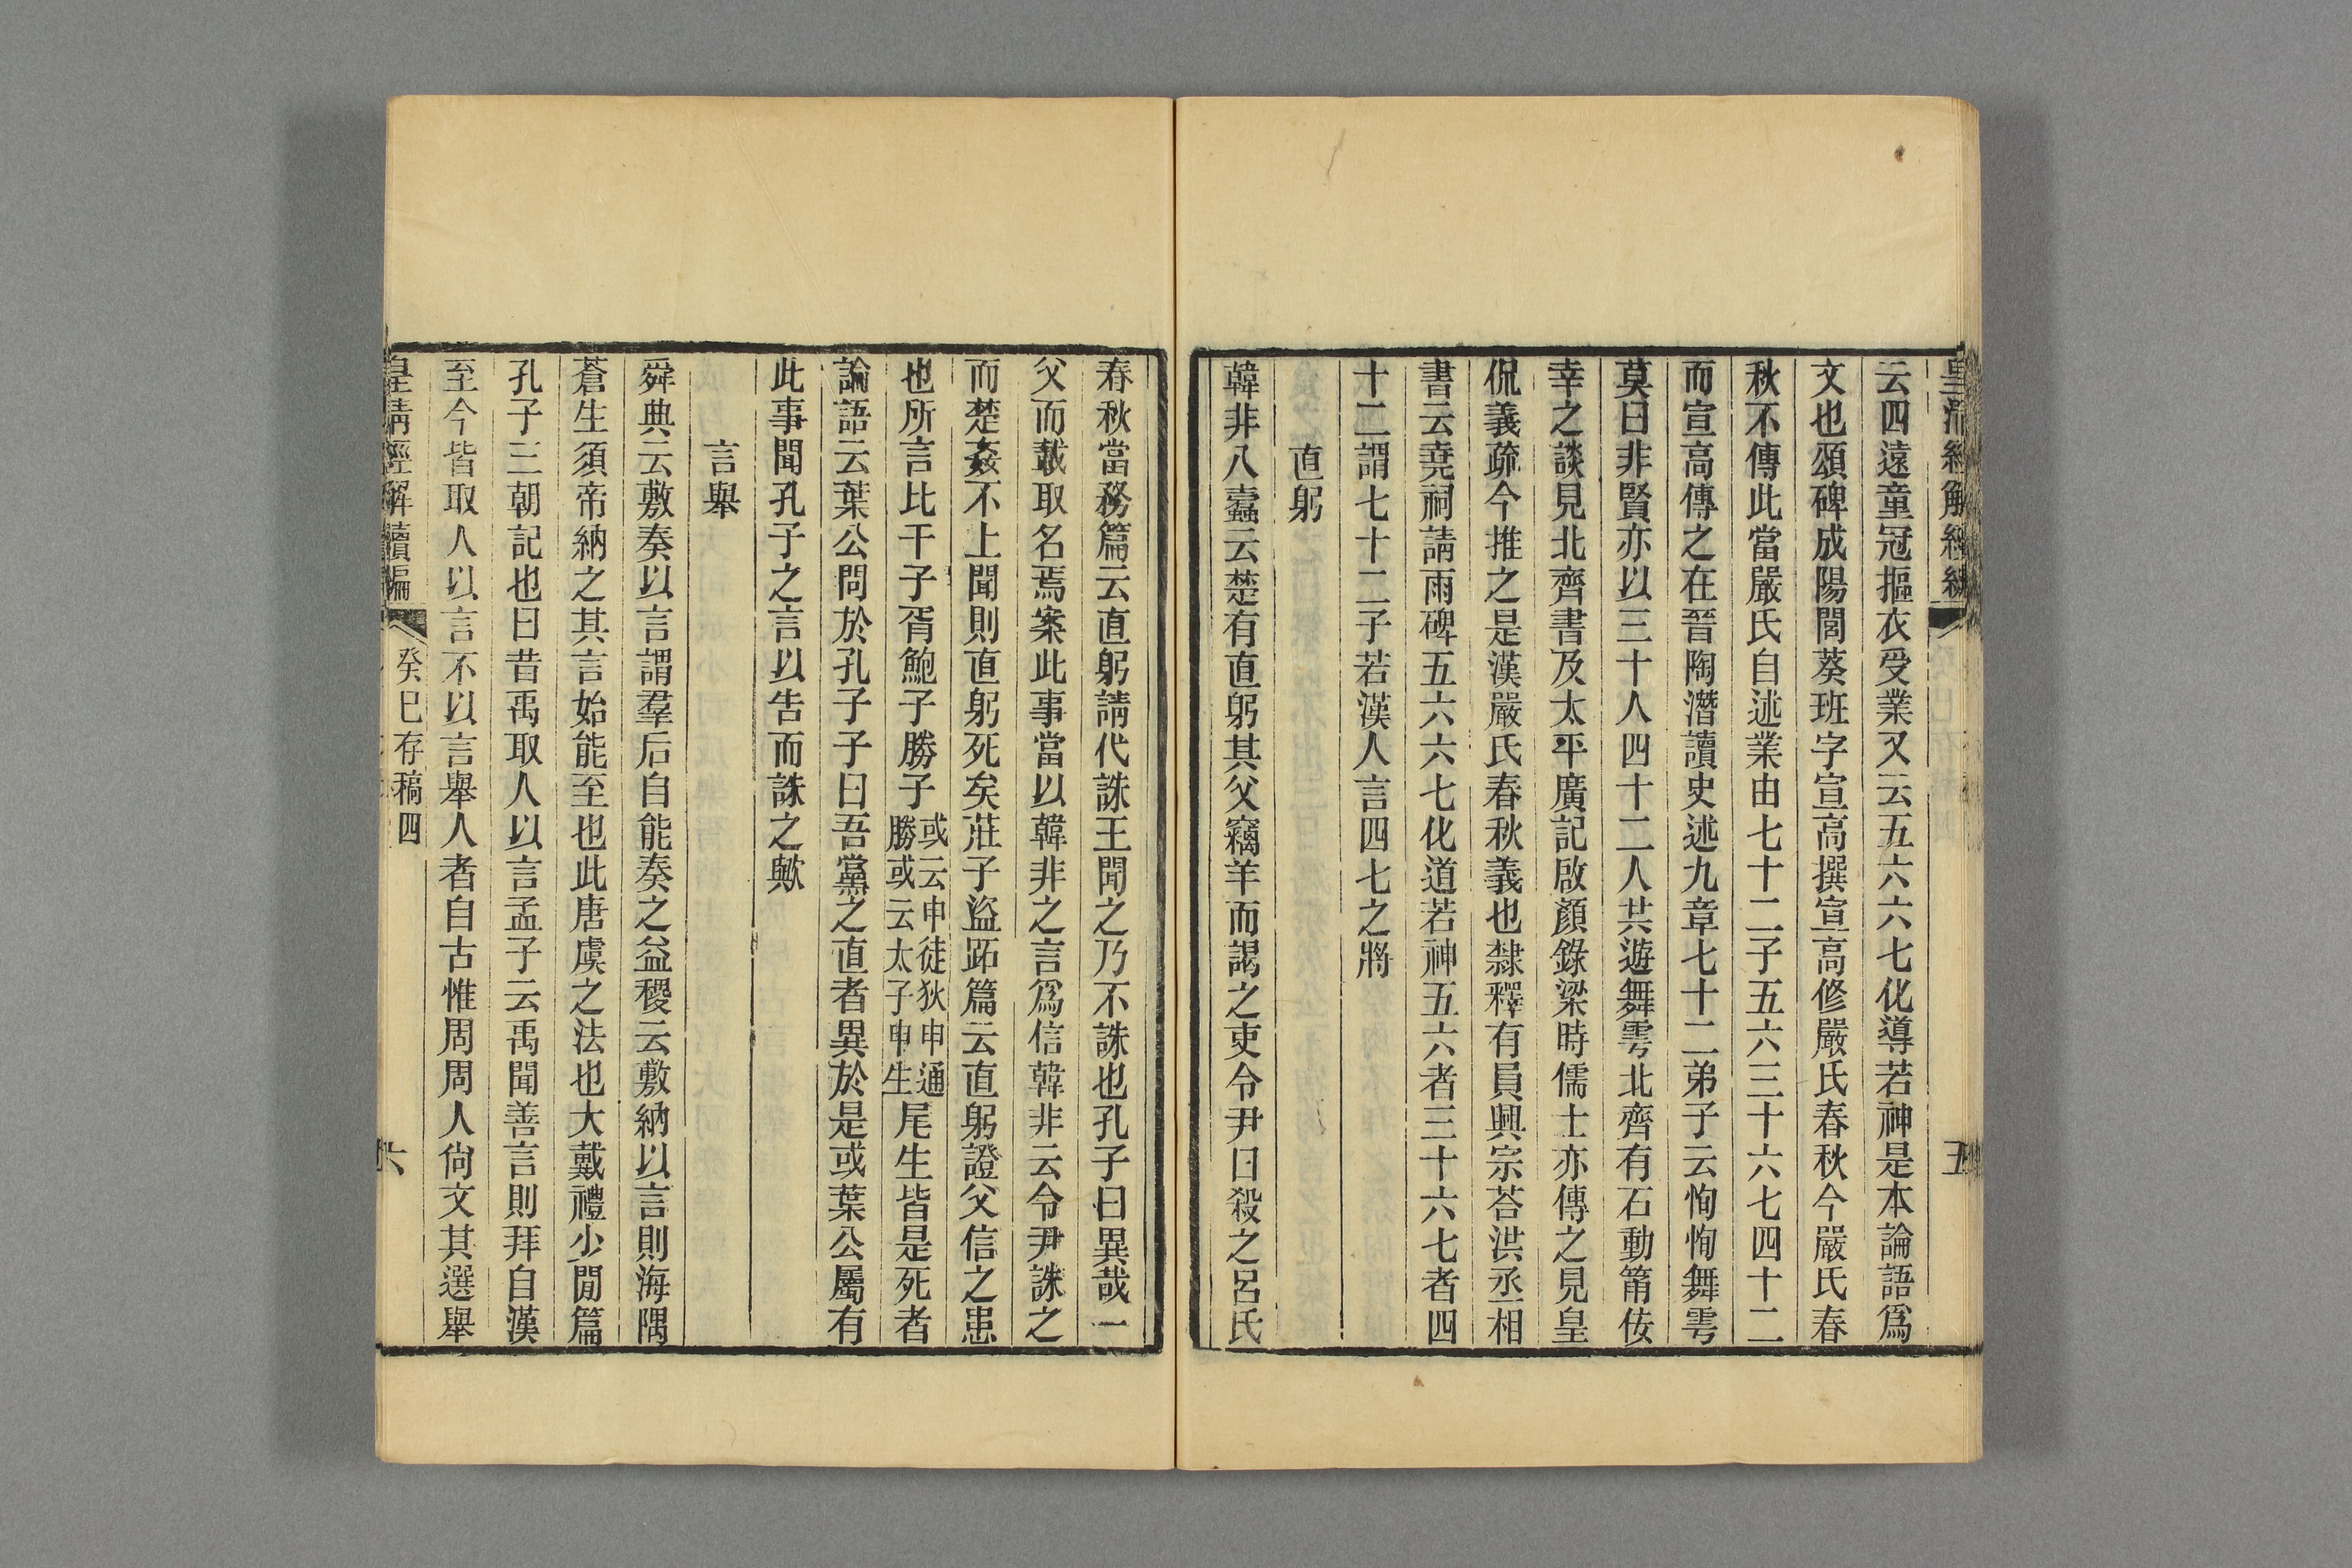 皇清經解續編
五
云四遠童冠摳衣受業又云五六六七化導若神是本論語爲
文也頌碑成陽閻葵班字宣高撰宣高修嚴氏春秋今嚴氏春
秋不傳此當嚴氏自述業由七十二子五六三十六七四十二
而宣高傳之在晉陶潛讀史述九章七十二弟子云恂恂舞雩
莫曰非賢亦以三十人四十二人共遊舞雩北齊有石動筩佞
幸之談見北齊書及太平廣記啟顏錄梁時儒士亦傳之見皇
侃義疏今推之是漢嚴氏春秋義也隸釋有員興宗荅洪丞相
書云堯祠請雨碑五六六七化道若神五六者三十六七者四
十二謂七十二子若漢人言四七之將
直躬
韓非八蠹云楚有直躬其父竊羊而謁之吏令尹曰殺之呂氏
春秋當務篇云直躬請代誅王聞之乃不誅也孔子曰異哉一
父而載取名焉案此事當以韓非之言爲信韓非云令尹誅之
而楚姦不上聞則直躬死矣莊子盜跖篇云直躬證父信之患
也所言比干子胥鮑子勝子或云申徒狄申通勝或云太子申生尾生皆是死者
論語云葉公問於孔子子曰吾黨之直者異於是或葉公屬有
此事聞孔子之言以告而誅之歟
言舉
舜典云敷奏以言謂羣后自能奏之益稷云敷納以言則海隅
蒼生須帝納之其言始能至也此唐虞之法也大戴禮少閒篇
孔子三朝記也曰昔禹取人以言孟子云禹聞善言則拜自漢
至今皆取人以言不以言舉人者自古惟周周人尙文其選舉
皇清經解續編
癸巳存稿四
六